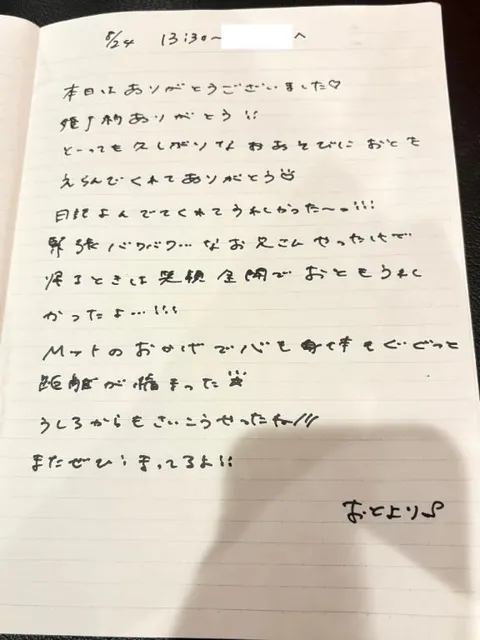 8/24 13:30〜 へ
本日はありがとうございました♡
予約ありがとう!!
とーっても久しぶりなおあそびに おとを
えらんでくれてありがとう
日記よんでてくれてうれしかった〜!!!
緊張バクバク…なお兄さんやったけで
帰るときは笑顔全開で おともうれし
かったよ…!!!
Mットのおかげで心も身体もぐぐっと
距離が縮まった
うしろからもさいこうやったね//
またぜひ! まってるよ!!
おとより♪